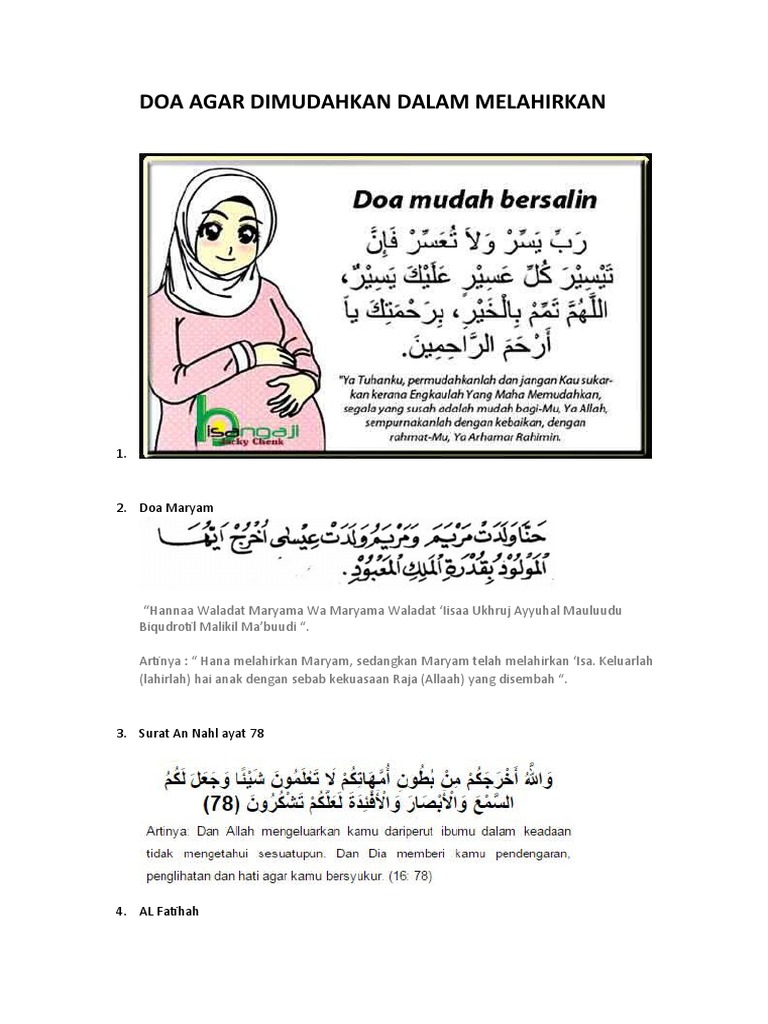 DOA AGAR DIMUDAHKAN DALAM MELAHIRKAN
Doa mudah bersalin
رَبِّ يَسِّرْ وَلاَ تُعَسِّرْ فَإِنَّ
تَيْسِيْرَ كُلِّ عَسِيْرٍ عَلَيْكَ يَسِيْرٌ،
اللَّهُمَّ تَمِّمْ بِالْخَيْرِ، بِرَحْمَتِكَ ياَ
أَرْحَمَ الرَّاحِمِينَ.
"Ya Tuhanku, permudahkanlah dan jangan Kau sukar-
kan kerana Engkaulah Yang Maha Memudahkan,
segala yang susah adalah mudah bagi-Mu, Ya Allah,
sempurnakanlah dengan kebaikan, dengan
rahmat-Mu, Ya Arhamar Rahimin.
bisangaji
Jacky Chenk
1.
2. Doa Maryam
حَنَّا وَلَدَتْ مَرْيَمَ وَمَرْيَمُ وَلَدَتْ عِيْسٰى اُخْرُجْ اَيُّهَا
الْمَوْلُوْدُ بِقُدْرَةِ الْمَلِكِ الْمَعْبُوْدِ.
“Hannaa Waladat Maryama Wa Maryama Waladat ‘Iisaa Ukhruj Ayyuhal Mauluudu
Biqudrotil Malikil Ma’buudi “.
Artinya : “ Hana melahirkan Maryam, sedangkan Maryam telah melahirkan ‘Isa. Keluarlah
(lahirlah) hai anak dengan sebab kekuasaan Raja (Allaah) yang disembah “.
3. Surat An Nahl ayat 78
وَاللَّهُ أَخْرَجَكُمْ مِنْ بُطُونِ أُمَّهَاتِكُمْ لَا تَعْلَمُونَ شَيْئًا وَجَعَلَ لَكُمُ
السَّمْعَ وَالْأَبْصَارَ وَالْأَفْئِدَةَ لَعَلَّكُمْ تَشْكُرُونَ (78)
Artinya: Dan Allah mengeluarkan kamu dariperut ibumu dalam keadaan
tidak mengetahui sesuatupun. Dan Dia memberi kamu pendengaran,
penglihatan dan hati agar kamu bersyukur. (16: 78)
4. AL Fatihah